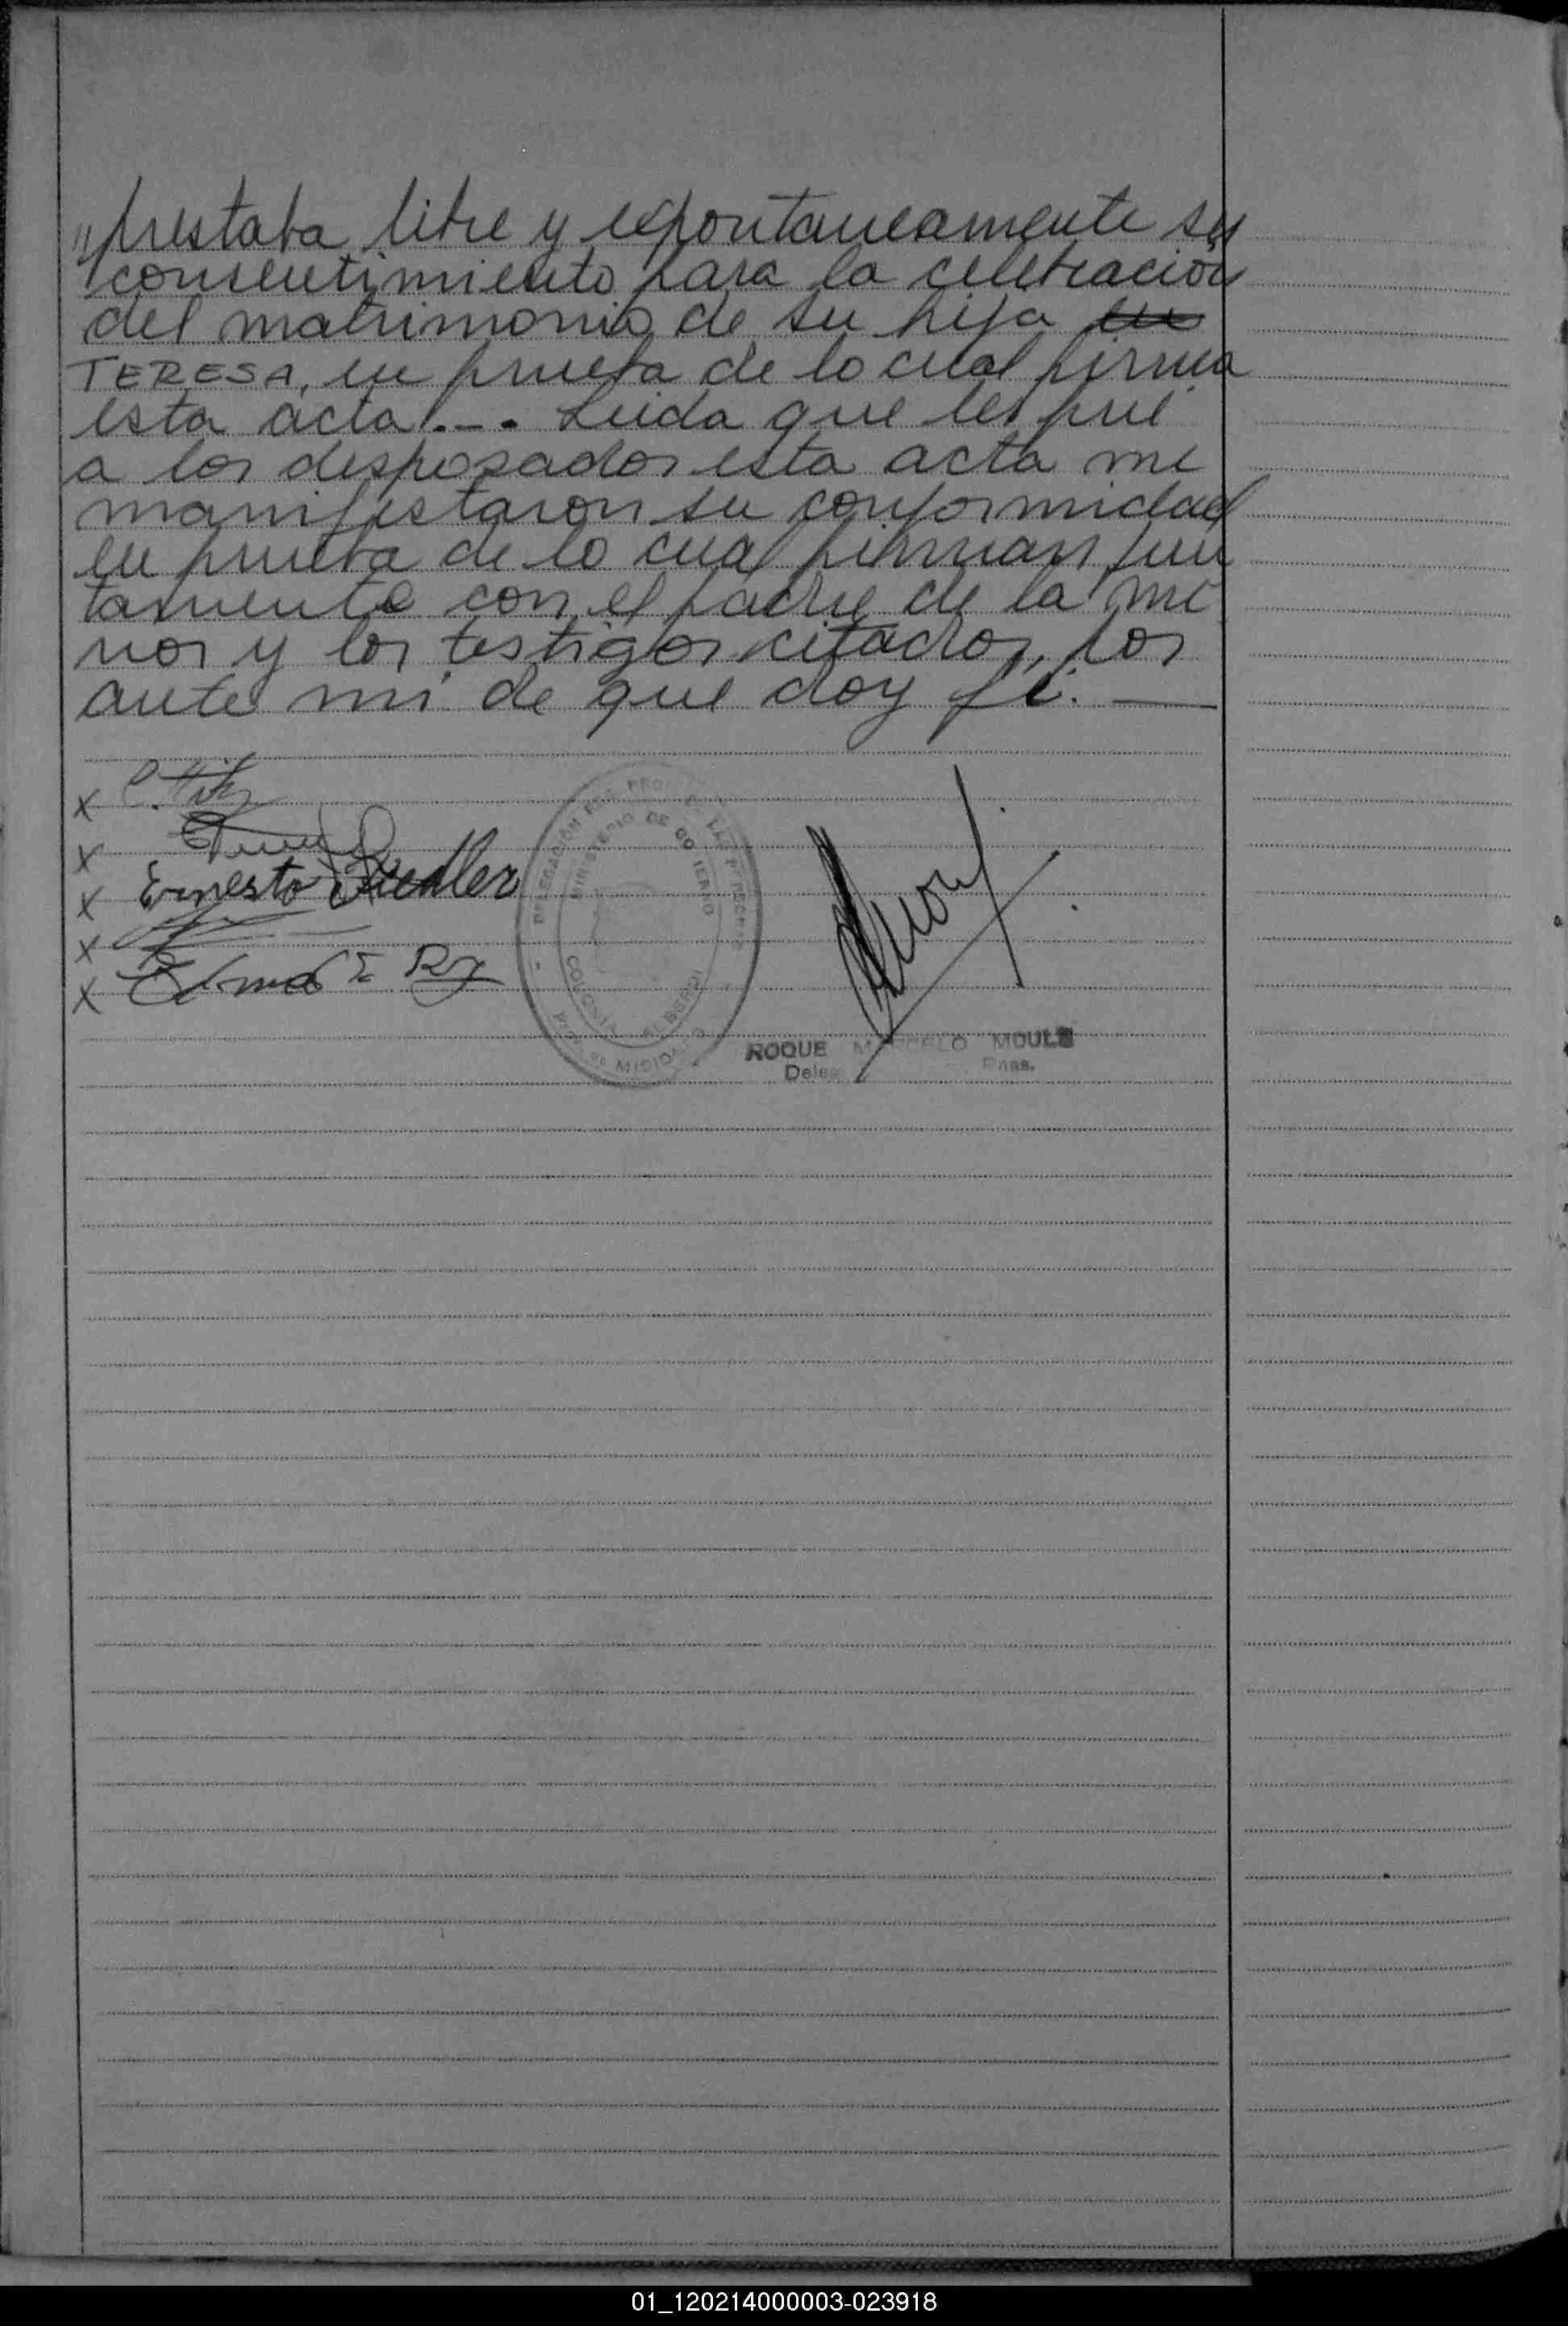 "prestaba libre y espontaneamente su
consentimiento para la celebracion
del matrimonio de su hija
TERESA, en prueba de lo cual firma
esta acta!.-. Leida que les fué
a los desposados esta acta me
manifestaron su conformidad
en prueba de lo cual firman jun
tamente con el padre de la me
nor y los testigos citados, por
ante mi de que doy fé. —
x
x
x Ernesto
x
x
DELEGACIÓN
MINISTERIO DE GOBIERNO
COLONIA ALBERDI
MISIONES
ROQUE MARCELO
01_120214000003-023918